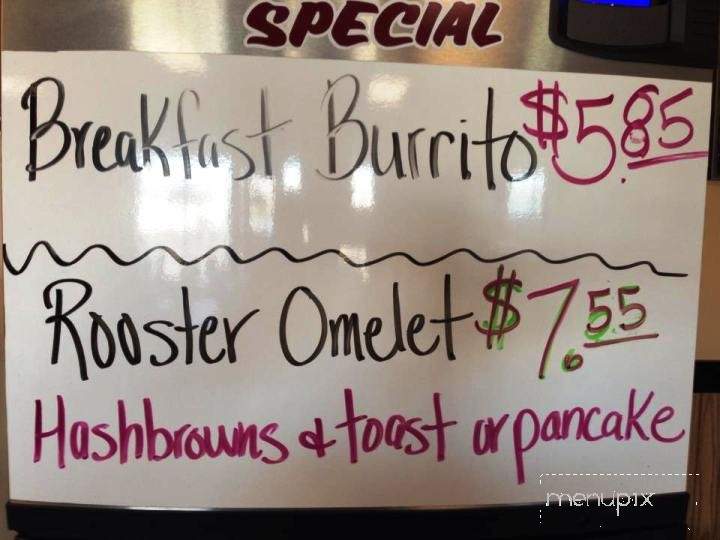 SPECIAL
Breakfast Burrito $5.85
Rooster Omelet $7.55
Hashbrowns & toast or pancake
menupix